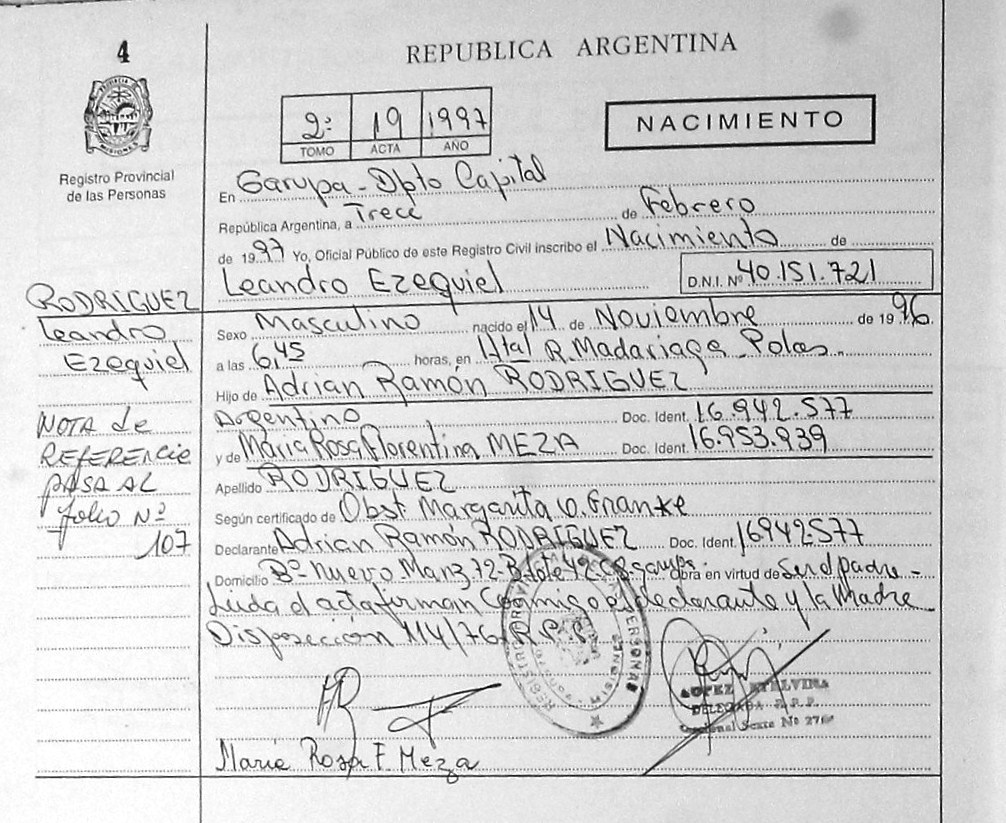 4
REPUBLICA ARGENTINA
PROVINCIA
MISIONES
Registro Provincial
de las Personas
2º 19 1997
TOMO ACTA AÑO
NACIMIENTO
En Garupa - Dpto Capital
República Argentina, a Trece de Febrero
de 1997 Yo, Oficial Público de este Registro Civil inscribo el Nacimiento de
Leandro Ezequiel D.N.I. Nº 40.151.721
RODRIGUEZ
Leandro
Ezequiel
NOTA de
REFERENCIA
PASA AL
folio Nº
107
Sexo Masculino nacido el 14 de Noviembre de 1996
a las 6,45 horas, en Htal R. Madariaga - Pdas.
Hijo de Adrian Ramón RODRIGUEZ
Argentino Doc. Ident. 16.942.577
y de Maria Rosa Florentina MEZA Doc. Ident. 16.953.939
Apellido RODRIGUEZ
Según certificado de Obst. Margarita
Declarante Adrian Ramón RODRIGUEZ Doc. Ident. 16942.577
Domicilio Bº Nuevo - Manz 72 - Obra en virtud de ser el padre -
Leida el acta firman conmigo el declarante y la Madre
Disposición 114/76 R.P.P.
REGISTRO PROV PERSONAS
LOPEZ ETELVINA
DELEGADA R.P.P.
Seccional Sexta Nº 2760
Maria Rosa F. Meza